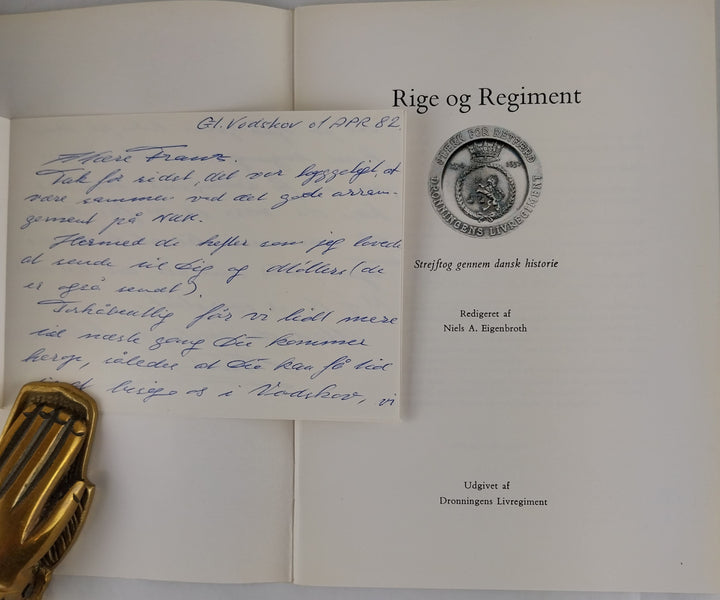 Gl. Vodskov 01 APR 82.
Kære Franz.
Tak for sidst, det var hyggeligt at
være sammen ved det gode arran-
gement på NUK.
Hermed de hefter som jeg lovede
at sende til Dig og Møllers (de
er også sendt).
Forhåbentlig får vi lidt mere
tid næste gang De kommer
herop, således at De kan få tid
besøge os i Vodskov, vi
Rige og Regiment
STYRK FOR RETFÆRD
1657
DRONNINGENS LIVREGIMENT
Strejftog gennem dansk historie
Redigeret af
Niels A. Eigenbroth
Udgivet af
Dronningens Livregiment